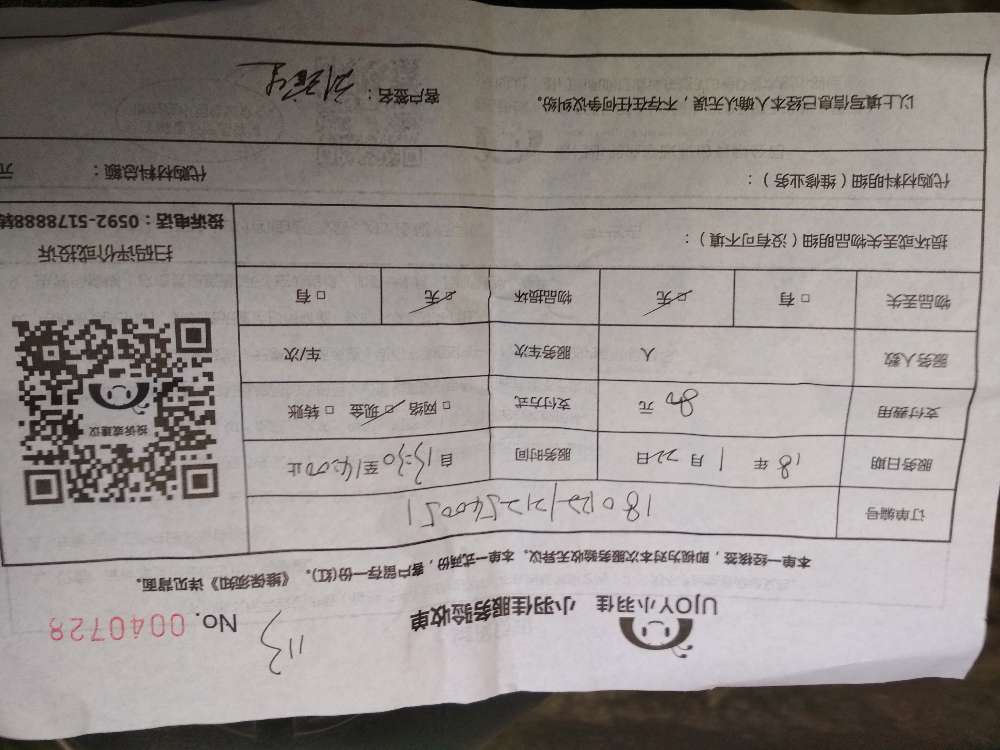 UJOY小羽佳 小羽佳服务验收单 113 No. 0040728
本单一经接签，即视为对本次服务验收无异议。本单一式两份，客户留存一份(红)。《维保须知》详见背面。
订单编号
服务日期 18 年 1 月 22 日 服务时间 自 13:30 至 14:00 止
支付费用 80 元 支付方式 □ 网络 □ 现金 □ 转账
服务人数 人 服务车次 车/次
物品丢失 □ 有 □ 无 物品损坏 □ 无 □ 有
损坏或丢失物品明细（没有可不填）：
投诉或建议
扫码评价或投诉
投诉电话：0592-5178888转
代购材料明细（维修业务）： 代购材料总额： 元
以上填写信息已经本人确认无误，不存在任何争议纠纷。 客户签名：